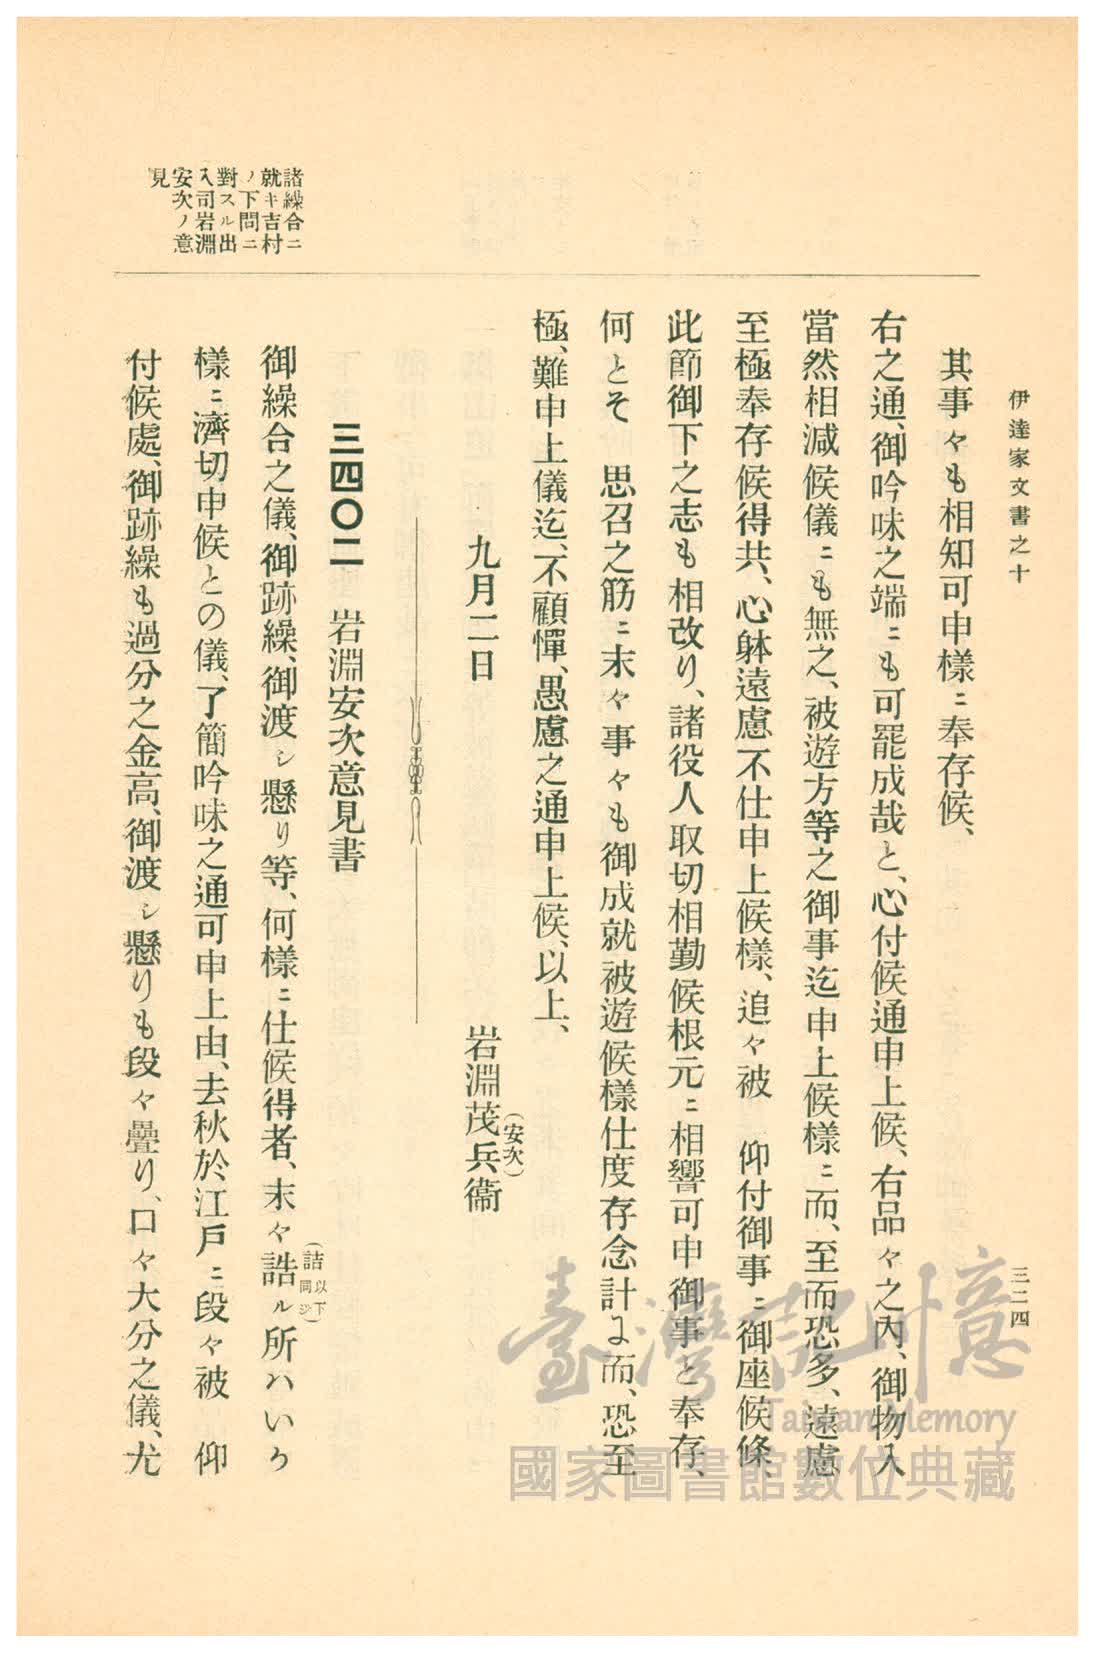 伊達家文書之十
三二四
其事々も相知可申樣ニ奉存候、
右之通、御吟味之端ニも可罷成哉と、心付候通申上候、右品々之內、御物入
當然相減候儀ニも無之、被遊方等之御事迄申上候樣ニ而、至而恐多、遠慮
至極奉存候得共、心躰遠慮不仕申上候樣、追々被　仰付御事ニ御座候條、
此節御下之志も相改り、諸役人取切相勤候根元ニ相響可申御事と奉存、
何とそ　思召之筋ニ末々事々も御成就被遊候樣仕度存念計ニ而、恐至
極、難申上儀迄、不顧憚、愚慮之通申上候、以上、
九月二日
岩淵茂兵衞
(安次)
三四〇二　岩淵安次意見書
諸繰合ニ
就キ吉村
ノ下問ニ
對スル出
入司岩淵
安次ノ意
見
御繰合之儀、御跡繰、御渡シ懸り等、何樣ニ仕候得者、末々誥ル所ハいか
(詰以下同ジ)
樣ニ濟切申候との儀、了簡吟味之通可申上由、去秋於江戶ニ段々被　仰
付候處、御跡繰も過分之金高、御渡シ懸りも段々疊り、口々大分之儀、尤
臺灣記憶
Taiwan Memory
國家圖書館數位典藏